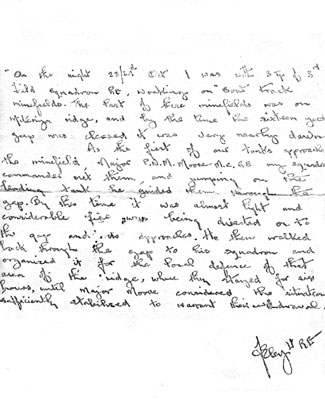 "On the night 23/24th Oct I was with 3 Tp of 3rd
Field Squadron RE, working on "Boat" track
minefields. The last of these minefields was on
Miteirya ridge, and by the time the sixteen yard
gap was cleared it was very nearly dawn.
As the first of our tanks approached
the minefield, Major P.N.M. Moore M.C, RE my squadron
commander met them, and jumping on the
leading tank he guided them through the
gap. By this time it was almost light and
considerable fire was being directed on to
the gap and its approaches. He then walked
back through the gap to his squadron and
organized it for the local defence of that
area of the ridge, where they stayed for six
hours, until Major Moore considered the situation
sufficiently stabilized to warrant their withdrawal.
Lt RE